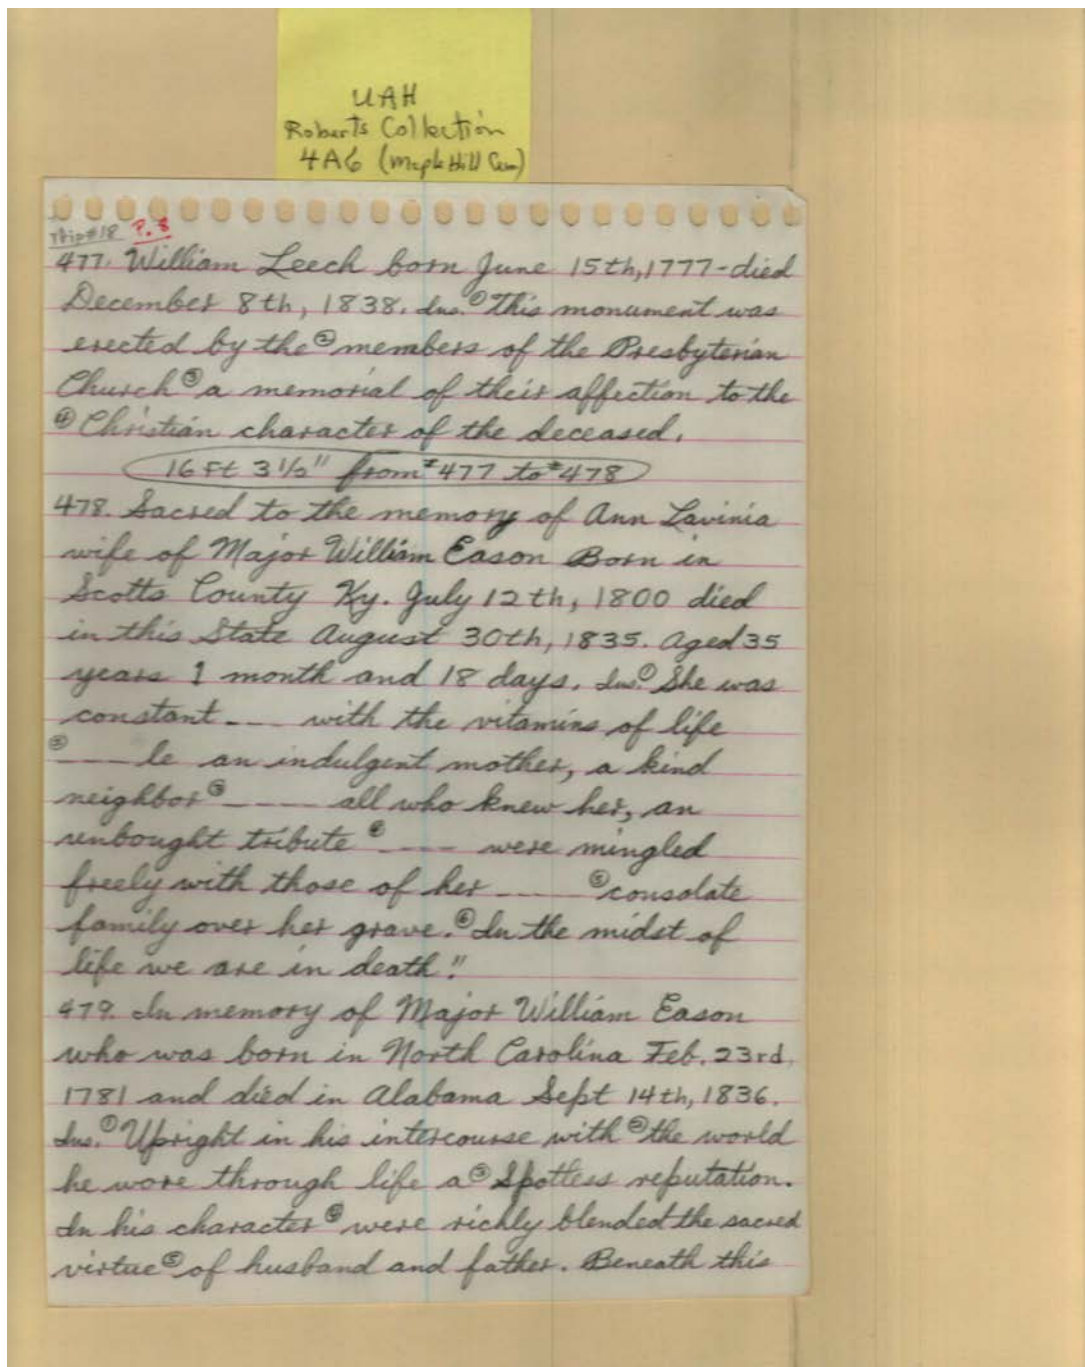 UAH
Roberts Collection
4A6 (Maple Hill Cem)
Trip#18 P. 8
477. William Leech born June 15th, 1777-died
December 8th, 1838. Ins. ① This monument was
erected by the ② members of the Presbyterian
Church ③ a memorial of their affection to the
④ Christian character of the deceased.
16 Ft 3 1/2" from #477 to #478
478. Sacred to the memory of Ann Lavinia
wife of Major William Eason Born in
Scotts County Ky. July 12th, 1800 died
in this State August 30th, 1835. Aged 35
years 1 month and 18 days. Ins. ① She was
constant --- with the vitamins of life
② --- le an indulgent mother, a kind
neighbor ③ ---- all who knew her, an
unbought tribute ④ ---- were mingled
freely with those of her --- ⑤ consolate
family over her grave. ⑥ In the midst of
life we are in death."
479. In memory of Major William Eason
who was born in North Carolina Feb. 23rd,
1781 and died in Alabama Sept 14th, 1836.
Ins. ① Upright in his intercourse with ② the world
he wore through life a ③ Spotless reputation.
In his character ④ were richly blended the sacred
virtue ⑤ of husband and father. Beneath this